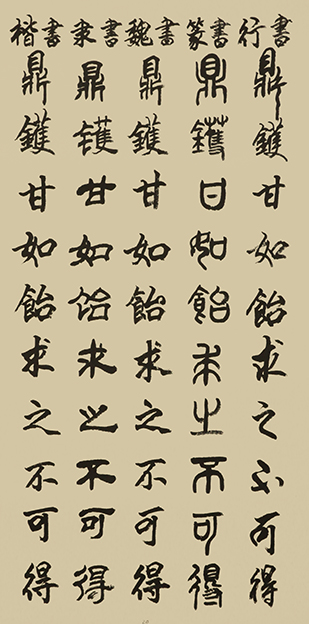 楷書 隶書 魏書 篆書 行書
鼎鑊甘如飴求之不可得
鼎鑊甘如飴求之不可得
鼎鑊甘如飴求之不可得
鼎鑊甘如飴求之不可得
鼎鑊甘如飴求之不可得